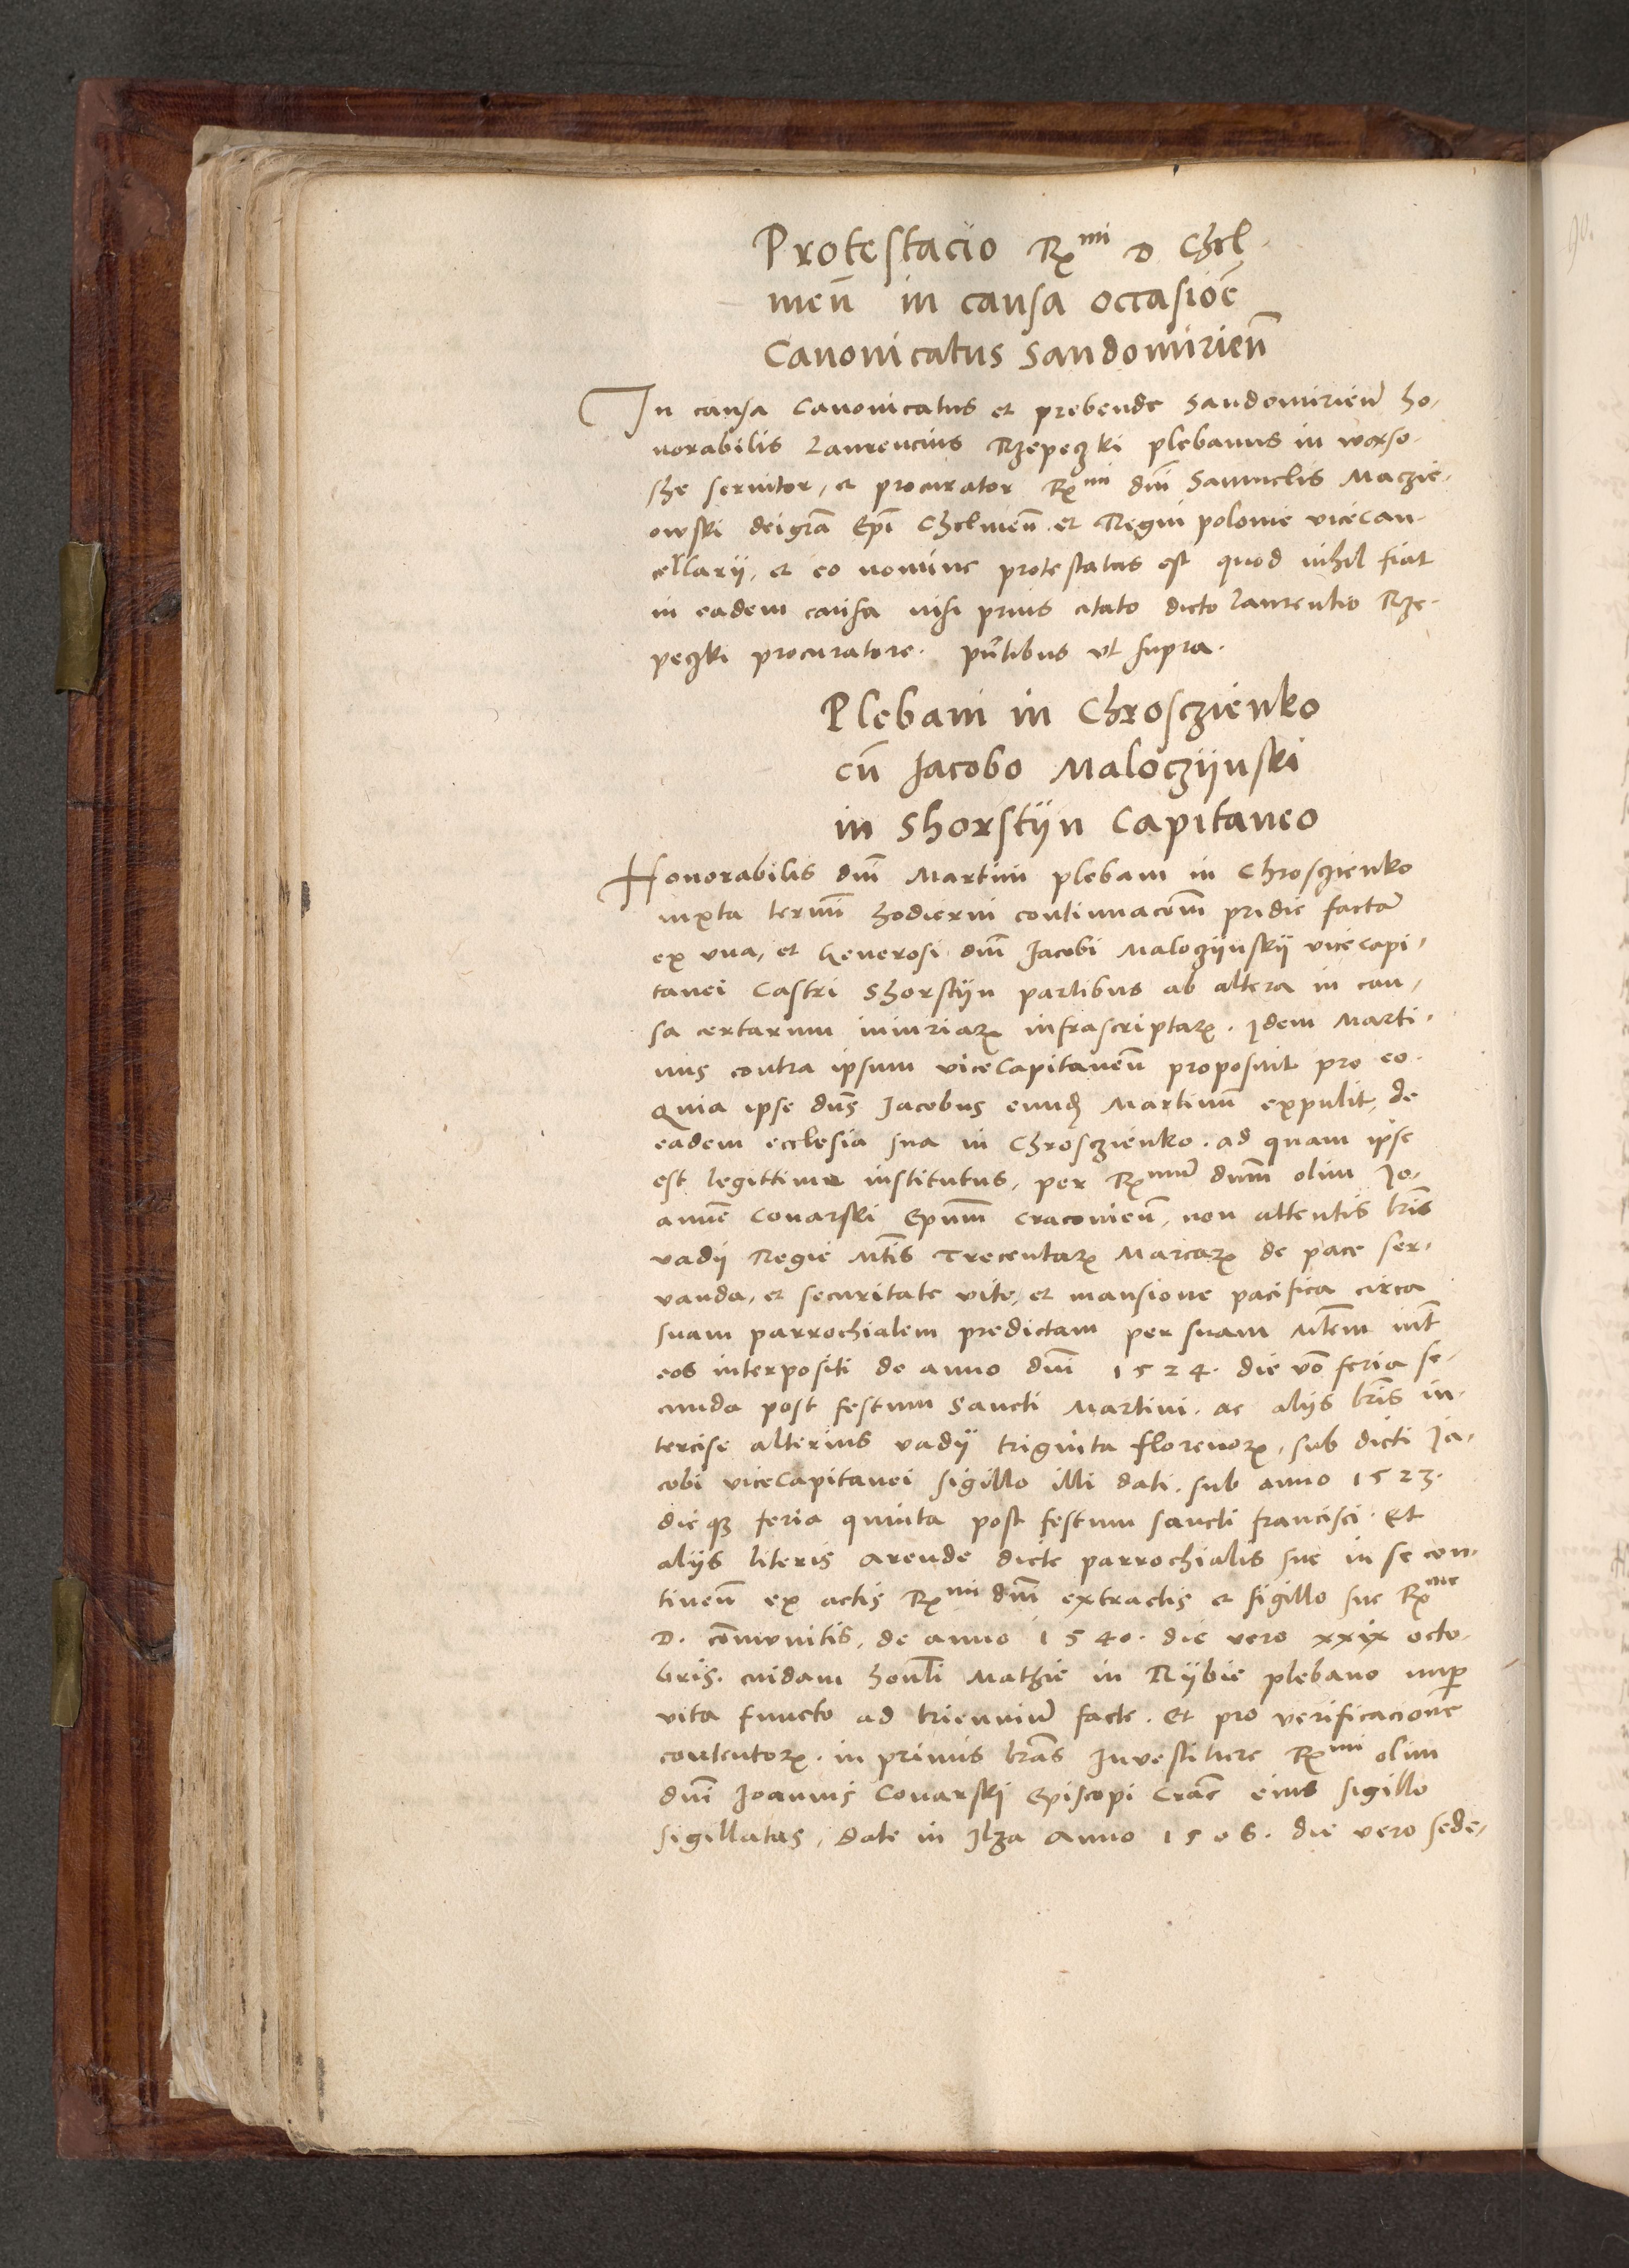 Protestacio Rx^mi D Chel-
meñ in causa occasioē
Canonicatus Sandomirieñ
In causa Canonicatus et prebende Sandomirieñ ho-
norabilis Laurencius Rzepeczki plebanus in
servitor, et procurator Rx^mi dnī Samuelis Maczie-
owski deigrā Epī Chelmeñ et Regni polonie viceCan-
cellarij, et eo nomine protestatus est quod nihil fiat
in eadem causa nisi prius citato dicto Laurentio Rze-
peczki procuratore. pñtibus vt supra.
Plebani in Chrosczienko
cū Jacobo Maloczijnski
in Shorstijn Capitaneo
Honorabilis dnī Martini plebani in Chrosczienko
iuxta termī hodierni continuacoēm pridie factā
ex vna, et Generosi dnī Jacobi Maloczijnskij vicecapi-
tanei Castri Shorstijn partibus ab altera in cau-
sa certarum iniuriarꝝ infrascriptarꝝ. Idem Marti-
nus contra ipsum viceCapitaneū proposuit pro eo
Quia ipse dnūs Jacobus eundꝫ Martinū expulit, de
eadem ecclesia sua in Chrosczienko. ad quam ipse
est legittime institutus, per Rx^mum dnūm olim Jo-
annē Conarski Epūm Cracovieñ, non attentis lrīs
vadij Regie Mtīs Trecentarꝝ Marcarꝝ de pace ser-
vanda, et securitate vite, et mansione pacifica circa
suam parrochialem predictam per suam Mtēm int̄
eos interpositi de anno dnī 1524. die vō feria se-
cunda post festum Sancti Martini. ac alijs lrīs in-
tercise alterius vadij triginta florenorꝝ, sub dicti Ja-
cobi viceCapitanei sigillo illi dati. sub anno 1523.
die qꝫ feria quinta post festum sancti francisci. Et
alijs literis arende dicte parrochialis sue in se con-
tineñ ex actis Rx^mi dnī extractis et sigillo sue Rx^me
D. cōmunitis, de anno 1540. die vero xxix octo-
bris. cuidam honlī Mathie in Rijbie plebano nup̄
vita functo ad trienniū facte. Et pro verificacione
contentorꝝ. in primis lrās Investiture Rx^mi olim
dnī Joannis Conarski Episcopi Crac̄ eius sigillo
sigillatas, Date in Ilza Anno 1506. die vero sede-